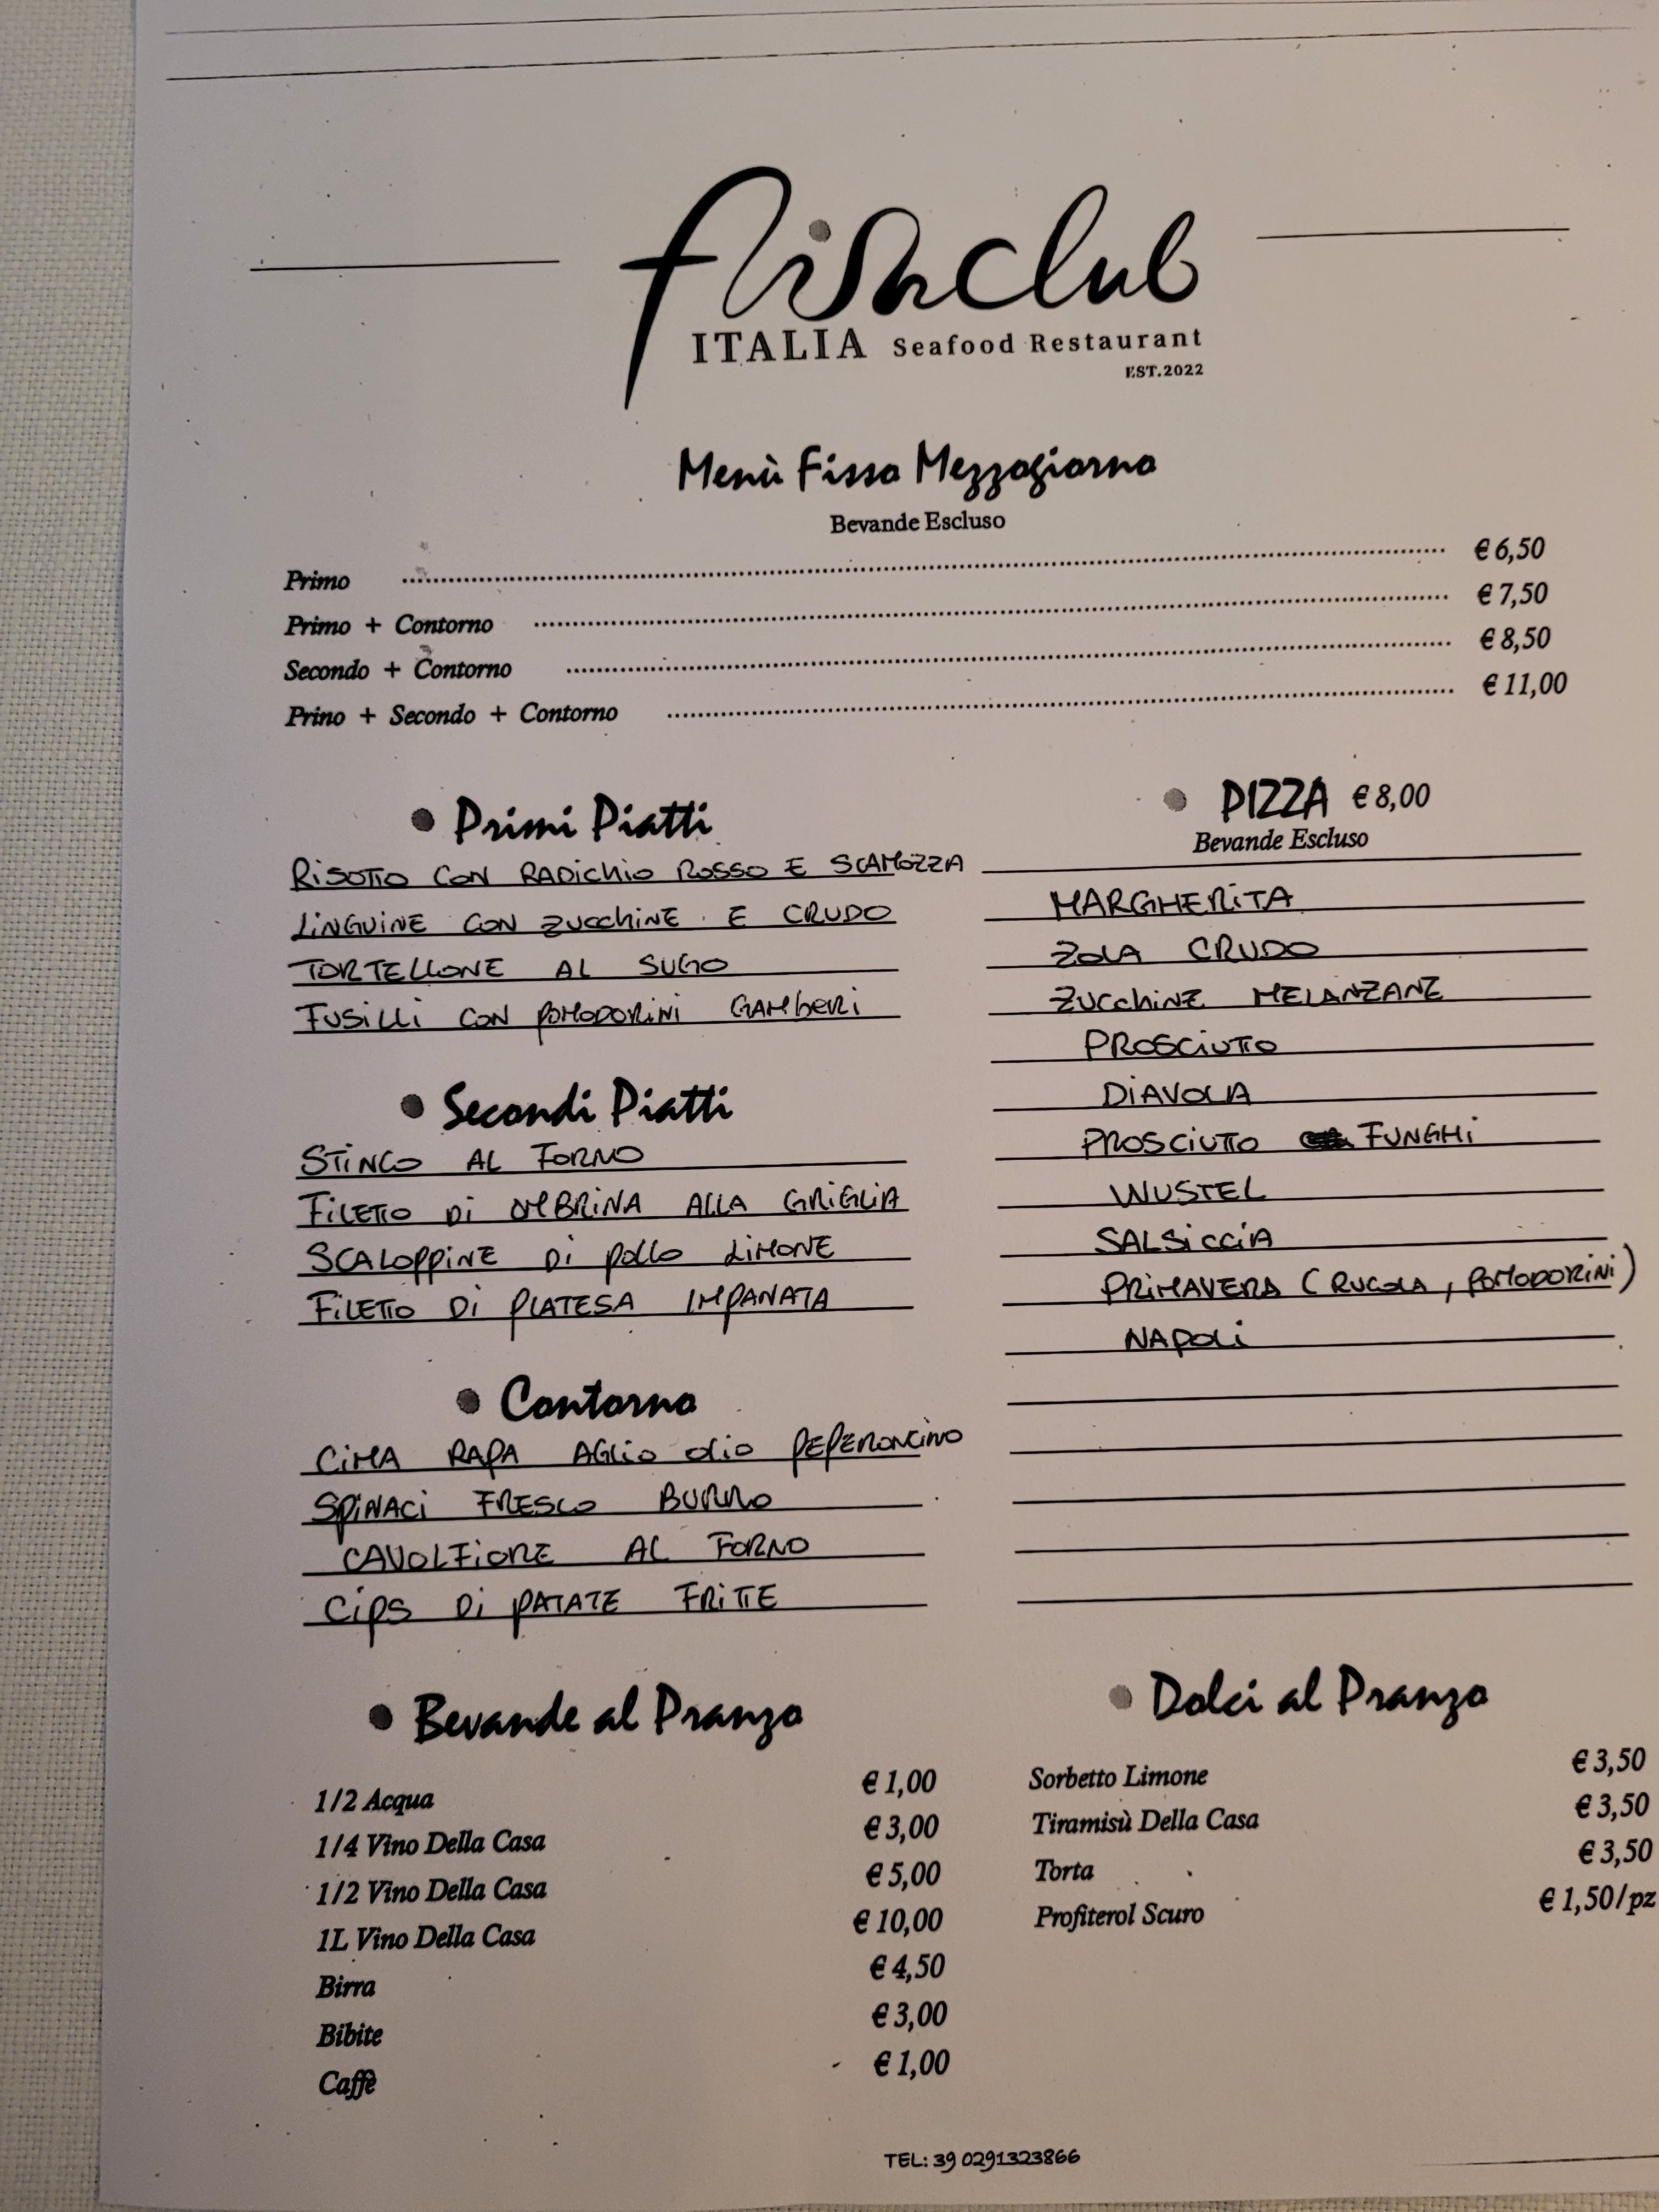 fishclub
ITALIA Seafood Restaurant
EST.2022
Menù Fisso Mezzogiorno
Bevande Escluso
Primo € 6,50
Primo + Contorno € 7,50
Secondo + Contorno € 8,50
Prino + Secondo + Contorno € 11,00
Primi Piatti
RISOTTO CON RADICHIO ROSSO E SCAMOZZA
LINGUINE CON ZUCCHINE E CRUDO
TORTELLONE AL SUGO
FUSILLI CON POMODORINI GAMBERI
Secondi Piatti
STINCO AL FORNO
FILETTO DI OMBRINA ALLA GRIGLIA
SCALOPPINE DI POLLO LIMONE
FILETTO DI PLATESA IMPANATA
Contorno
CIMA RAPA AGLIO OLIO PEPERONCINO
SPINACI FRESCO BURRO
CAVOLFIORE AL FORNO
CIPS DI PATATE FRITTE
PIZZA € 8,00
Bevande Escluso
MARGHERITA
ZOLA CRUDO
ZUCCHINE MELANZANE
PROSCIUTTO
DIAVOLA
PROSCIUTTO FUNGHI
WUSTEL
SALSICCIA
PRIMAVERA (RUCOLA, POMODORINI)
NAPOLI
Bevande al Pranzo
1/2 Acqua € 1,00
1/4 Vino Della Casa € 3,00
1/2 Vino Della Casa € 5,00
1L Vino Della Casa € 10,00
Birra € 4,50
Bibite € 3,00
Caffè € 1,00
Dolci al Pranzo
Sorbetto Limone € 3,50
Tiramisù Della Casa € 3,50
Torta € 3,50
Profiterol Scuro € 1,50/pz
TEL: 39 0291323866